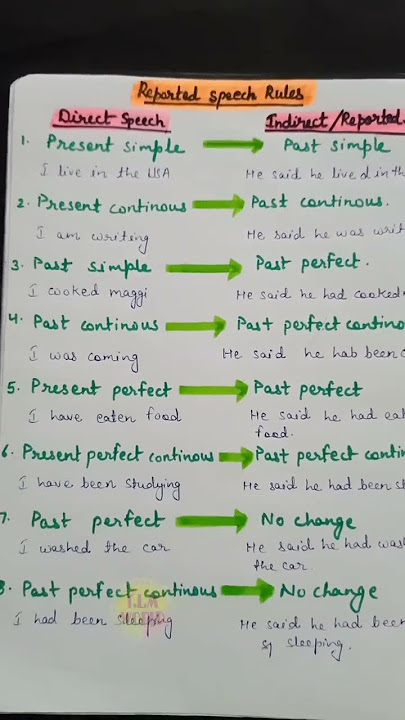 Reported Speech Rules
Direct Speech Indirect/Reported
1. Present simple Past simple
I live in the USA He said he lived in th
2. Present continous Past continous.
I am writing He said he was writ
3. Past simple Past perfect.
I cooked maggi He said he had cooked
4. Past continous Past perfect contino
I was coming He said he hab been
5. Present perfect Past perfect
I have eaten food He said he had eat
food.
6. Present perfect continous Past perfect contin
I have been studying He said he had been st
7. Past perfect No change
I washed the car He said he had wash
the car
8. Past perfect continous No change
I had been sleeping He said he had been
sleeping.